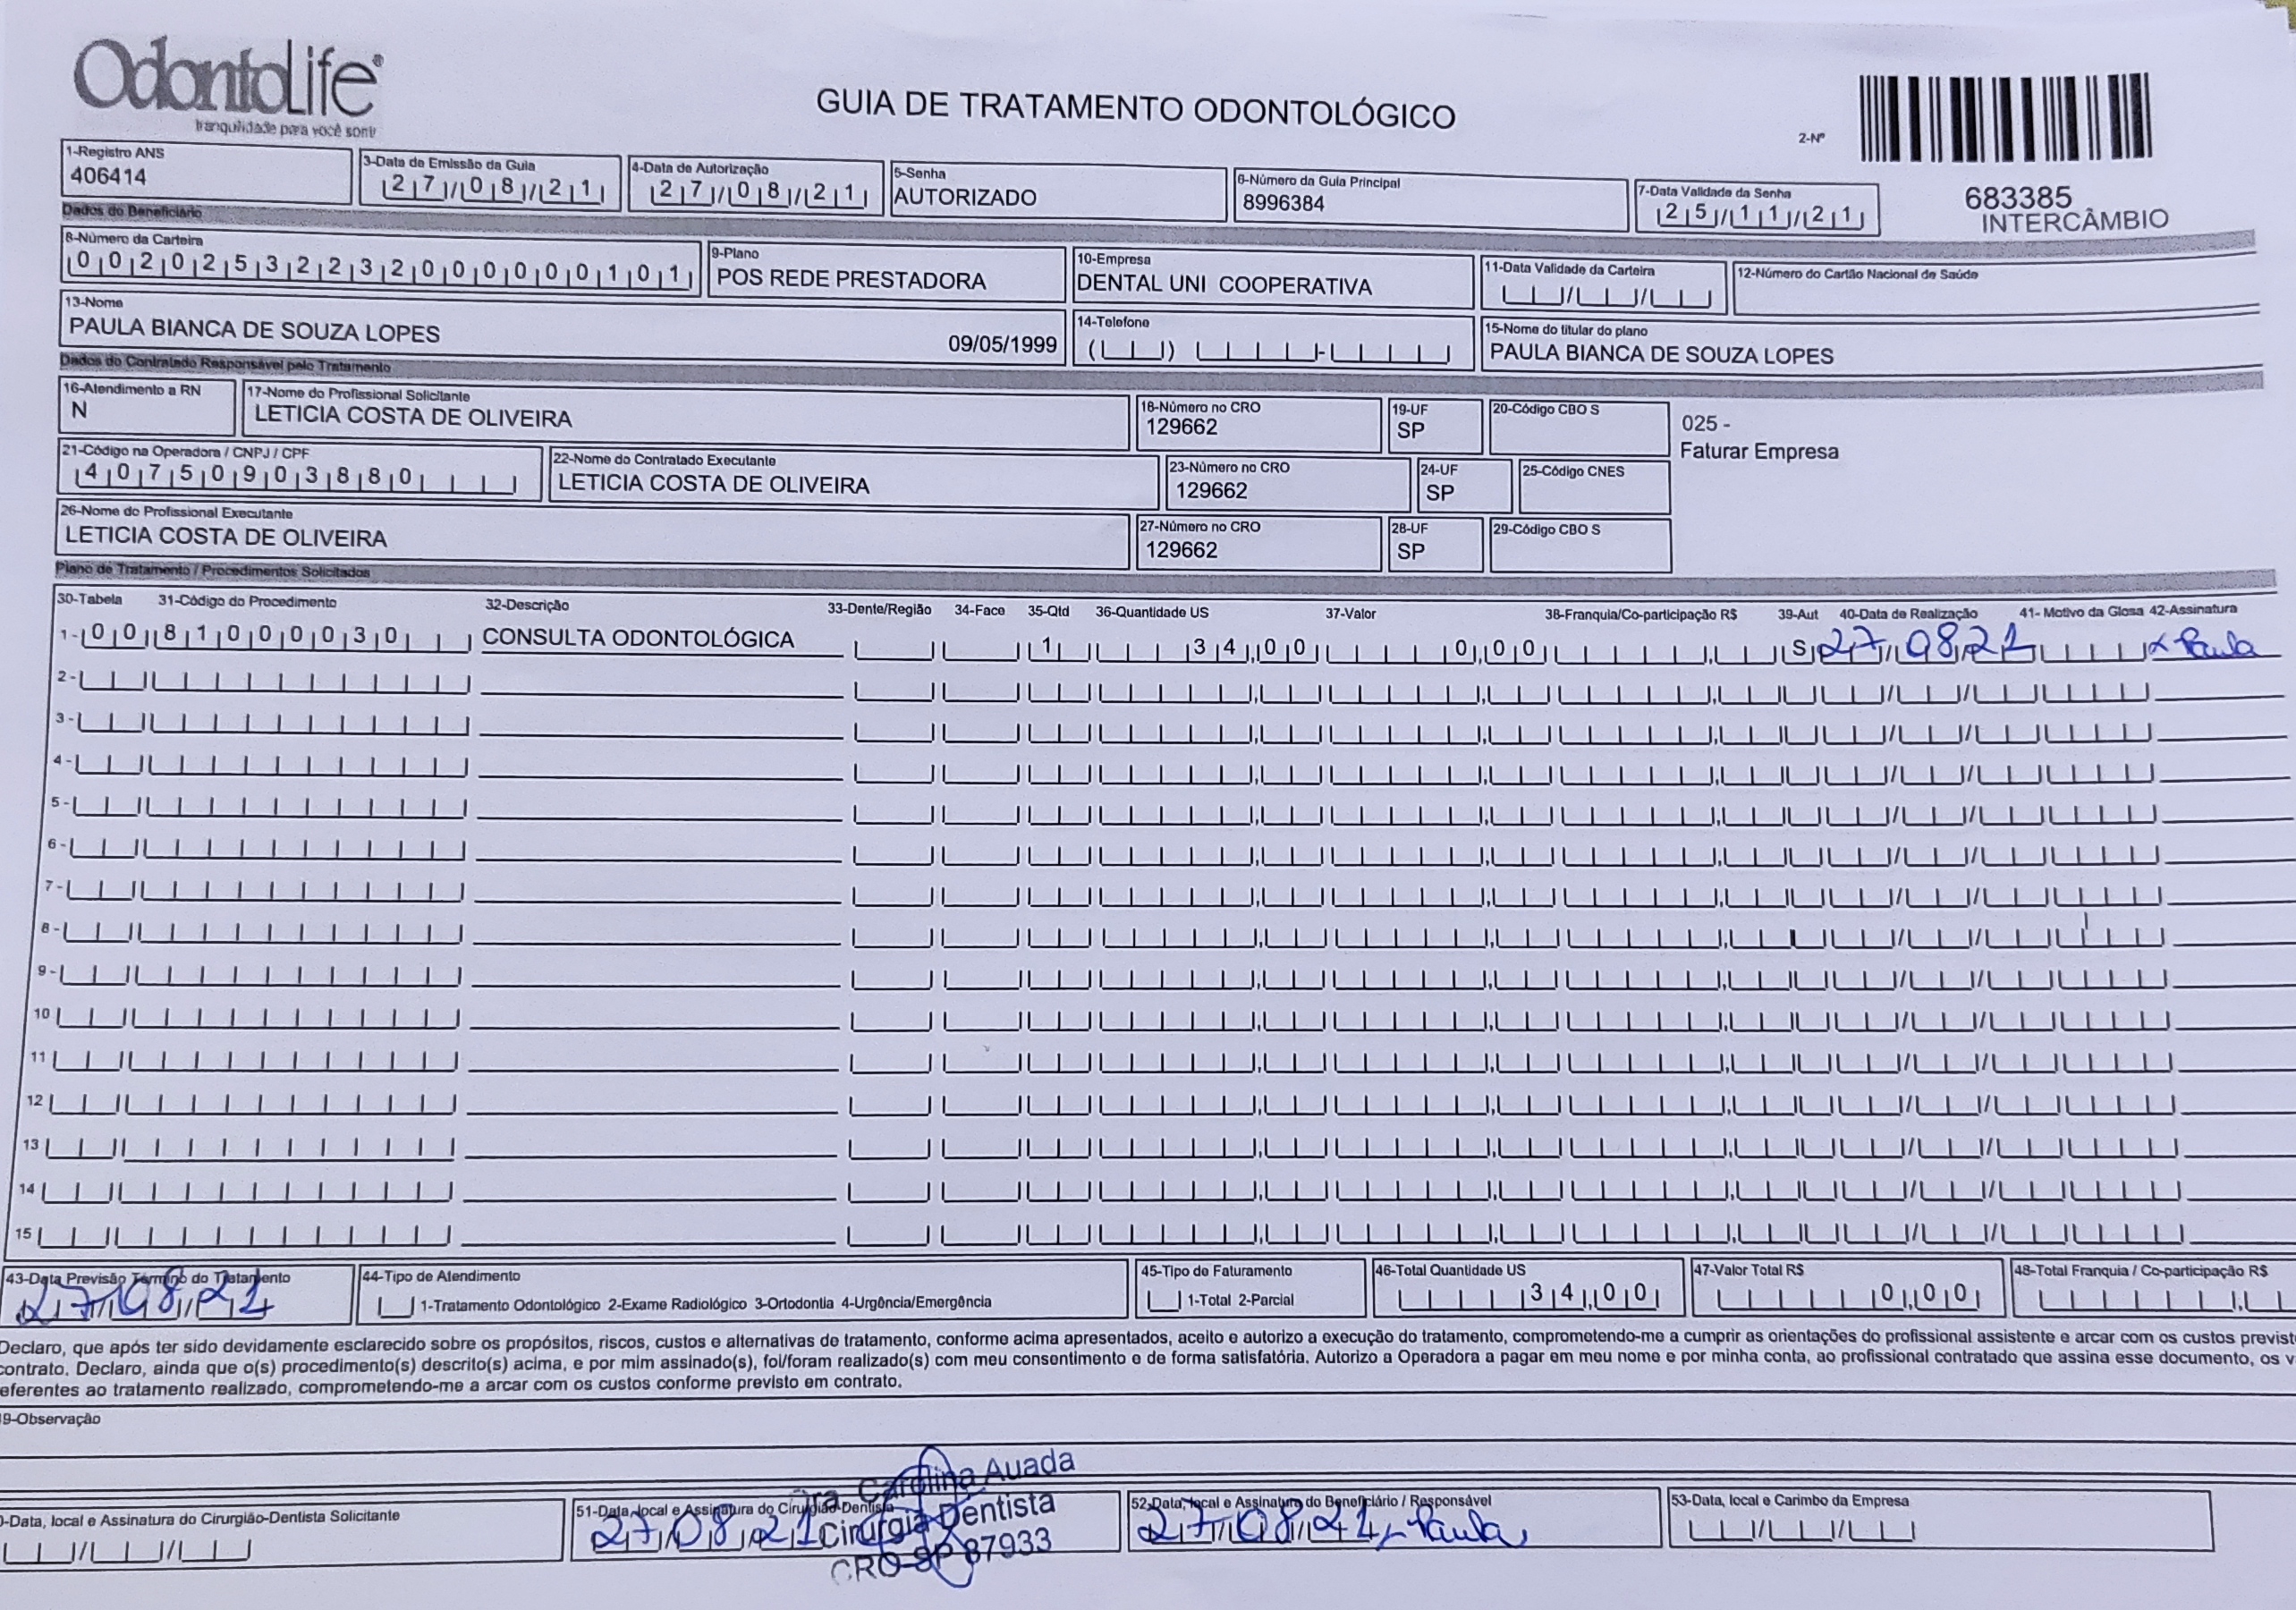 OdontoLife®
tranquilidade para você sorrir
GUIA DE TRATAMENTO ODONTOLÓGICO
2-Nº
683385
INTERCÂMBIO
1-Registro ANS
406414
3-Data de Emissão da Guia
27/08/21
4-Data de Autorização
27/08/21
5-Senha
AUTORIZADO
6-Número da Guia Principal
8996384
7-Data Validade da Senha
25/11/21
Dados do Beneficiário
8-Número da Carteira
00202532232000000101
9-Plano
POS REDE PRESTADORA
10-Empresa
DENTAL UNI COOPERATIVA
11-Data Validade da Carteira
12-Número do Cartão Nacional de Saúde
13-Nome
PAULA BIANCA DE SOUZA LOPES 09/05/1999
14-Telefone
15-Nome do titular do plano
PAULA BIANCA DE SOUZA LOPES
Dados do Contratado Responsável pelo Tratamento
16-Atendimento a RN
N
17-Nome do Profissional Solicitante
LETICIA COSTA DE OLIVEIRA
18-Número no CRO
129662
19-UF
SP
20-Código CBO S
025 -
Faturar Empresa
21-Código na Operadora / CNPJ / CPF
40750903880
22-Nome do Contratado Executante
LETICIA COSTA DE OLIVEIRA
23-Número no CRO
129662
24-UF
SP
25-Código CNES
26-Nome do Profissional Executante
LETICIA COSTA DE OLIVEIRA
27-Número no CRO
129662
28-UF
SP
29-Código CBO S
Plano de Tratamento / Procedimentos Solicitados
30-Tabela 31-Código do Procedimento 32-Descrição 33-Dente/Região 34-Face 35-Qtd 36-Quantidade US 37-Valor 38-Franquia/Co-participação R$ 39-Aut 40-Data de Realização 41- Motivo da Glosa 42-Assinatura
1- 00 81000030 CONSULTA ODONTOLÓGICA 1 34,00 0,00 S 27/08/21 x Paula
2-
3-
4-
5-
6-
7-
8-
9-
10
11
12
13
14
15
43-Data Previsão Término do Tratamento
27/08/21
44-Tipo de Atendimento
1-Tratamento Odontológico 2-Exame Radiológico 3-Ortodontia 4-Urgência/Emergência
45-Tipo de Faturamento
1-Total 2-Parcial
46-Total Quantidade US
34,00
47-Valor Total R$
0,00
48-Total Franquia / Co-participação R$
Declaro, que após ter sido devidamente esclarecido sobre os propósitos, riscos, custos e alternativas de tratamento, conforme acima apresentados, aceito e autorizo a execução do tratamento, comprometendo-me a cumprir as orientações do profissional assistente e arcar com os custos previst
contrato. Declaro, ainda que o(s) procedimento(s) descrito(s) acima, e por mim assinado(s), foi/foram realizado(s) com meu consentimento e de forma satisfatória. Autorizo a Operadora a pagar em meu nome e por minha conta, ao profissional contratado que assina esse documento, os v
eferentes ao tratamento realizado, comprometendo-me a arcar com os custos conforme previsto em contrato.
9-Observação
-Data, local e Assinatura do Cirurgião-Dentista Solicitante
51-Data, local e Assinatura do Cirurgião-Dentista
27/08/21
Dra. Carolina Auada
Cirurgiã Dentista
CRO-SP 87933
52-Data, local e Assinatura do Beneficiário / Responsável
27/08/21 Paula
53-Data, local e Carimbo da Empresa